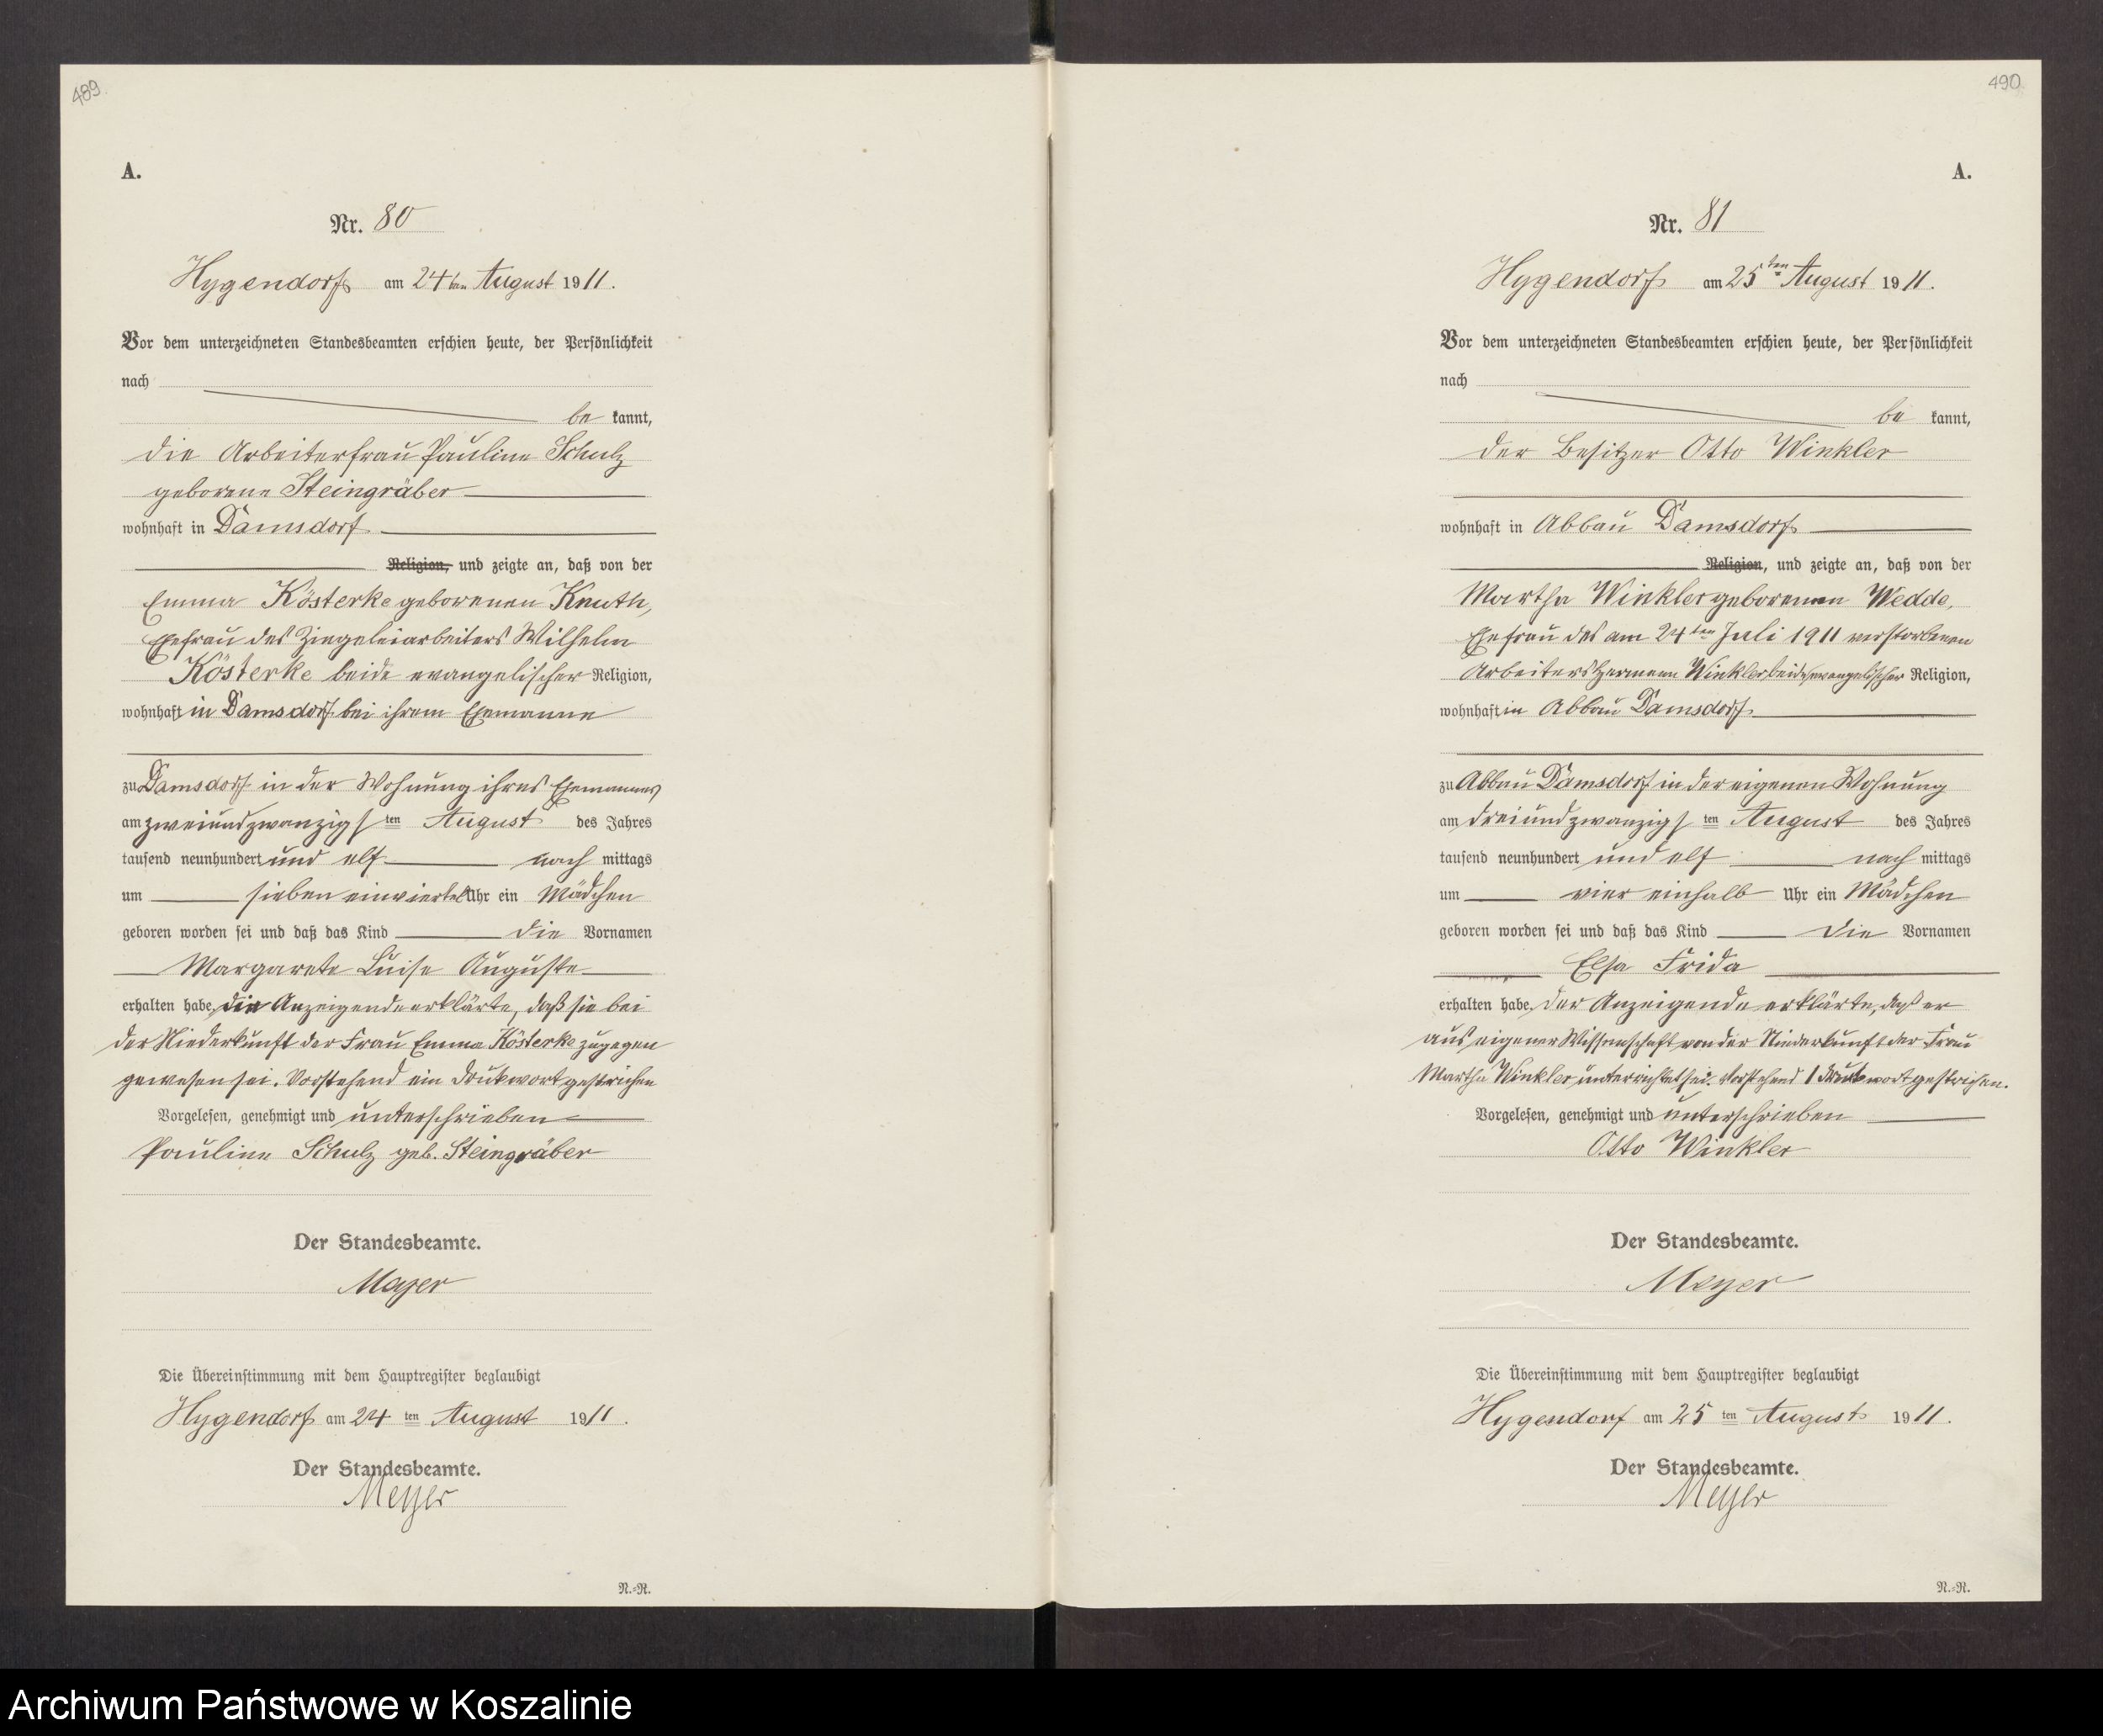 489.
A.
Nr. 80
Hygendorf am 24ten August 1911.
Vor dem unterzeichneten Standesbeamten erschien heute, der Persönlichkeit
nach
be kannt,
die Arbeiterfrau Pauline Schulz
geborene Steingräber
wohnhaft in Damsdorf
Religion, und zeigte an, daß von der
Emma Kösterke geborenen Knuth,
Ehefrau des Ziegeleiarbeiters Wilhelm
Kösterke beide evangelischer Religion,
wohnhaft in Damsdorf bei ihrem Ehemanne
zu Damsdorf in der Wohnung ihres Ehemannes
am zweiundzwanzigsten August des Jahres
tausend neunhundert und elf nach mittags
um sieben einviertel Uhr ein Mädchen
geboren worden sei und daß das Kind die Vornamen
Margarete Luise Auguste
erhalten habe. die Anzeigende erklärte, daß sie bei
der Niederkunft der Frau Emma Kösterke zugegen
gewesen sei. Vorstehend ein Druckwort gestrichen
Vorgelesen, genehmigt und unterschrieben
Pauline Schulz geb. Steingräber
Der Standesbeamte.
Meyer
Die Übereinstimmung mit dem Hauptregister beglaubigt
Hygendorf am 24 ten August 1911.
Der Standesbeamte.
Meyer
N.=N.
490.
A.
Nr. 81
Hygendorf am 25ten August 1911.
Vor dem unterzeichneten Standesbeamten erschien heute, der Persönlichkeit
nach
be kannt,
der Besitzer Otto Winkler
wohnhaft in Abbau Damsdorf
Religion, und zeigte an, daß von der
Martha Winkler geborenen Wedde,
Ehefrau des am 24ten Juli 1911 verstorbenen
Arbeiters Hermann Winkler, beide evangelischer Religion,
wohnhaft in Abbau Damsdorf
zu Abbau Damsdorf in der eigenen Wohnung
am dreiundzwanzigsten August des Jahres
tausend neunhundert und elf nach mittags
um vier einhalb Uhr ein Mädchen
geboren worden sei und daß das Kind die Vornamen
Elsa Frida
erhalten habe. der Anzeigende erklärte, daß er
aus eigener Wissenschaft von der Niederkunft der Frau
Martha Winkler unterrichtet sei. Vorstehend 1 Druckwort gestrichen.
Vorgelesen, genehmigt und unterschrieben
Otto Winkler
Der Standesbeamte.
Meyer
Die Übereinstimmung mit dem Hauptregister beglaubigt
Hygendorf am 25 ten August 1911.
Der Standesbeamte.
Meyer
N.=N.
Archiwum Państwowe w Koszalinie